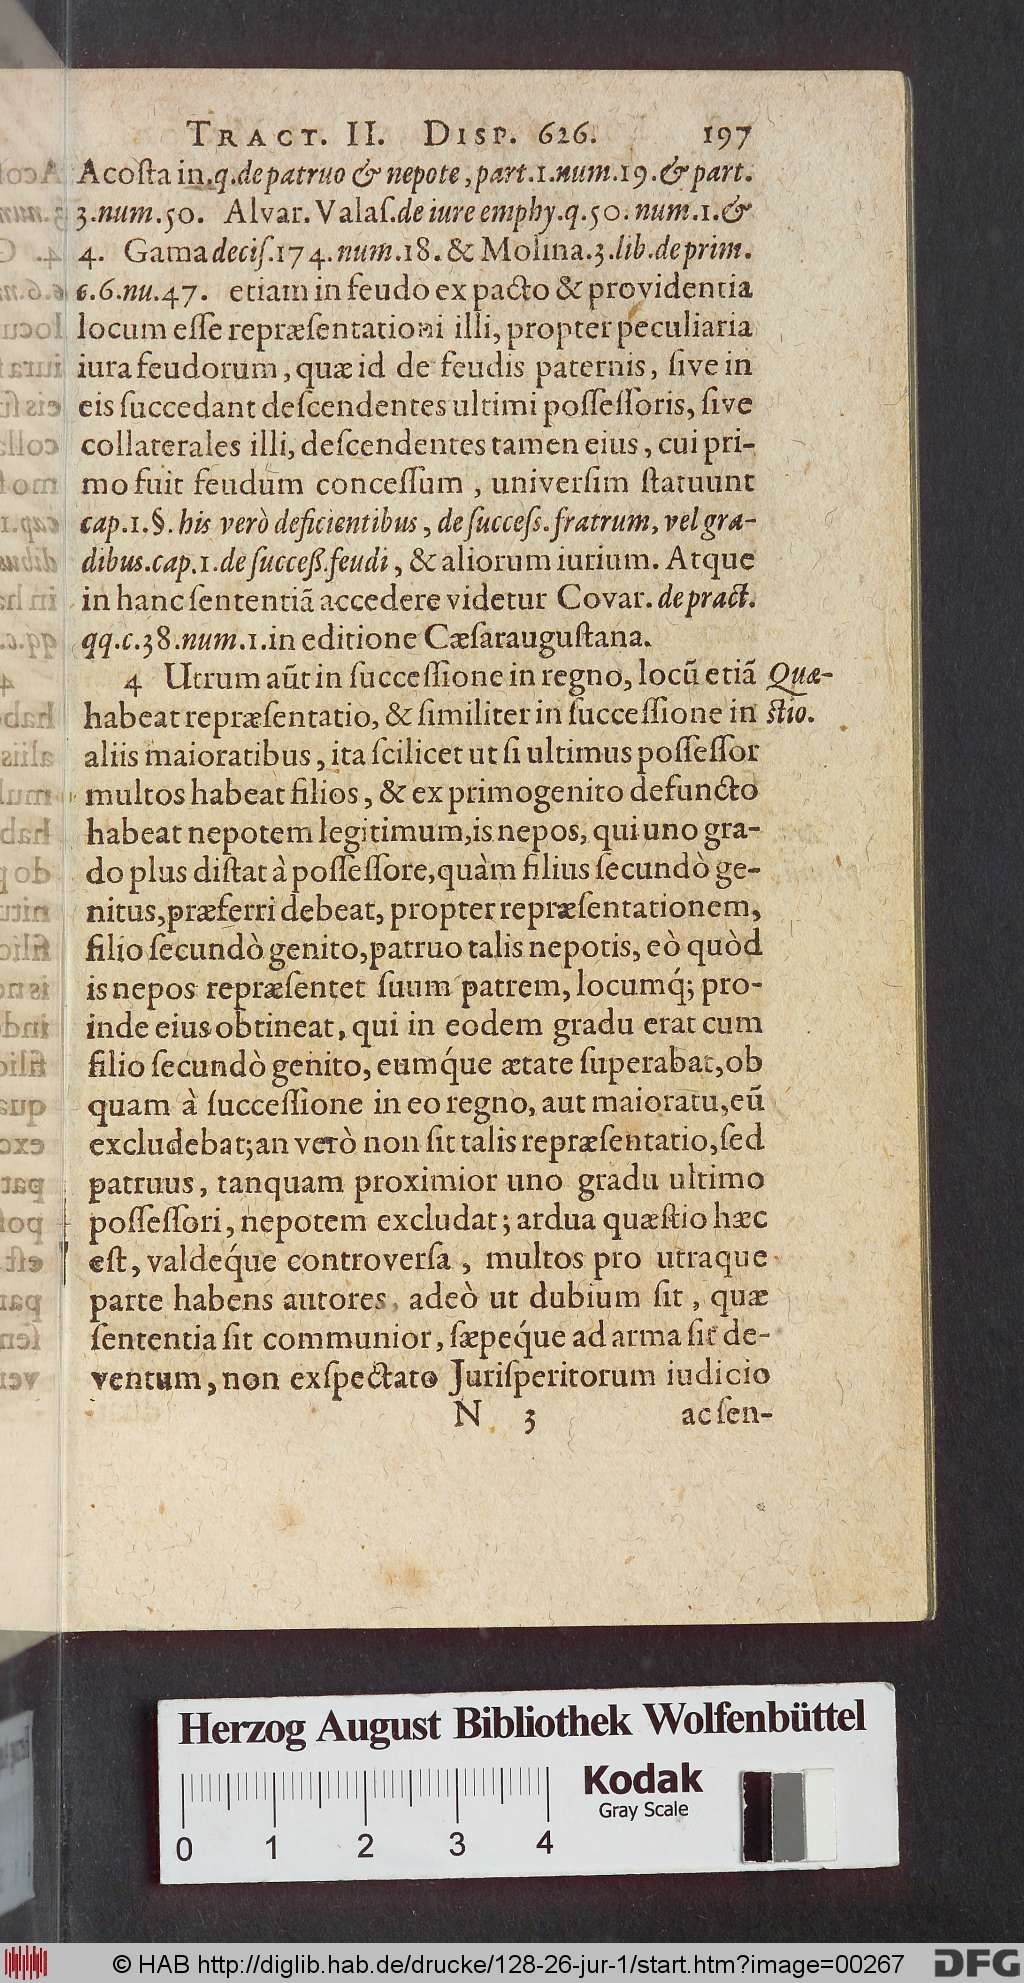 TRACT. II. DISP. 626. 197
Acosta in.q.de patruo & nepote, part.1.num.19.& part.
3.num.50. Alvar. Valaſ.de iure emphy.q.50.num.1.&
4. Gama deciſ.174.num.18. & Molina.3.lib.de prim.
c.6.nu.47. etiam in feudo ex pacto & providentia
locum eſſe repræſentationi illi, propter peculiaria
iura feudorum, quæ id de feudis paternis, ſive in
eis ſuccedant deſcendentes ultimi poſſeſſoris, ſive
collaterales illi, deſcendentes tamen eius, cui pri-
mo fuit feudum conceſſum, univerſim ſtatuunt
cap.1.§. his verò deficientibus, de ſucceſs.fratrum, vel gra-
dibus.cap.1.de ſucceß.feudi, & aliorum iurium. Atque
in hanc ſententiã accedere videtur Covar. de pract.
qq.c.38.num.1.in editione Cæſarauguſtana.
4 Utrum aũt in ſucceſſione in regno, locũ etiã Quæ-
habeat repræſentatio, & ſimiliter in ſucceſſione in ſtio.
aliis maioratibus, ita ſcilicet ut ſi ultimus poſſeſſor
multos habeat filios, & ex primogenito defuncto
habeat nepotem legitimum, is nepos, qui uno gra-
do plus diſtat à poſſeſſore, quàm filius ſecundò ge-
nitus, præferri debeat, propter repræſentationem,
filio ſecundò genito, patruo talis nepotis, eò quòd
is nepos repræſentet ſuum patrem, locumq́; pro-
inde eius obtineat, qui in eodem gradu erat cum
filio ſecundò genito, eumq́ue ætate ſuperabat, ob
quam à ſucceſſione in eo regno, aut maioratu, eũ
excludebat; an verò non ſit talis repræſentatio, ſed
patruus, tanquam proximior uno gradu ultimo
poſſeſſori, nepotem excludat; ardua quæſtio hæc
eſt, valdeq́ue controverſa, multos pro utraque
parte habens autores, adeò ut dubium ſit, quæ
ſententia ſit communior, ſæpeq́ue ad arma ſit de-
ventum, non exſpectato Juriſperitorum iudicio
N 3 ac ſen-
Herzog August Bibliothek Wolfenbüttel
Kodak
Gray Scale
0 1 2 3 4
© HAB http://diglib.hab.de/drucke/128-26-jur-1/start.htm?image=00267
DFG